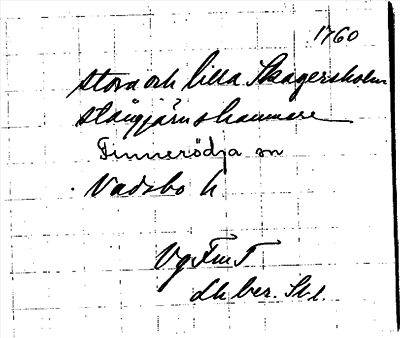 1760
Stora och lilla Skagersholm
stångjärnshammare
Finnerödja sn
Vadsbo h
VgFmT